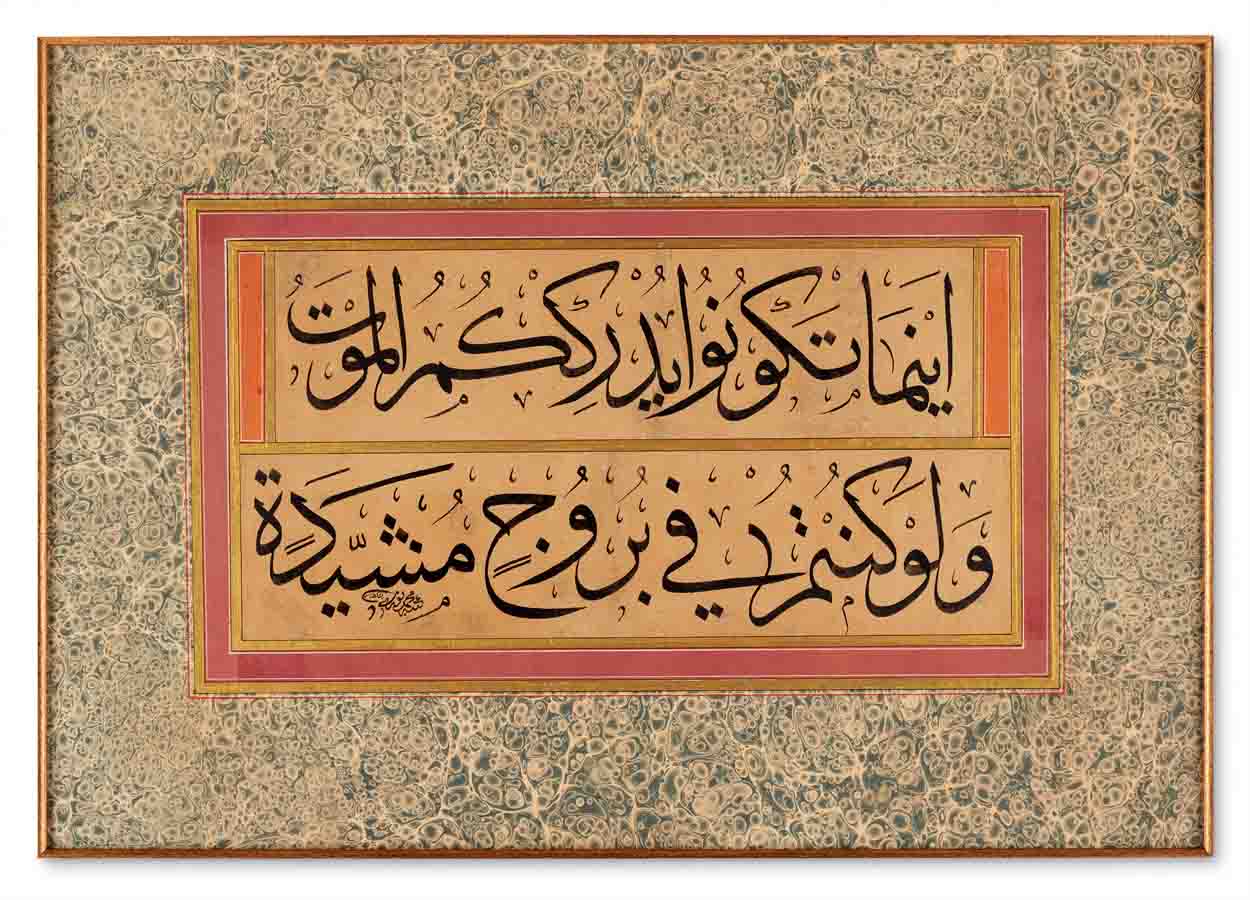 اينما تكونوا يدرككم الموت
ولو كنتم في بروج مشيدة